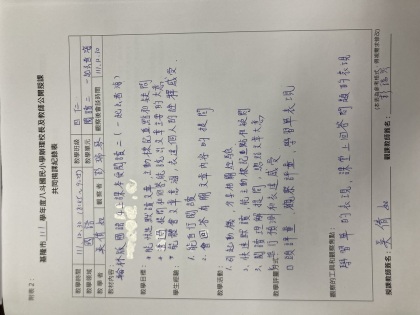 附表2：
基隆市 111 學年度八斗國民小學辦理校長及教師公開授課
共同備課紀錄表
教學時間 111.12.30 教學班級 四仁
教學領域 國語 教學單元 閱讀二 一起去看海
教學者 吳倩如 觀察者 彭 觀察後會談時間 111.12.30
教材內容：
翰林版國語4上課本安閱讀二(一起去看海)
教學目標：
*能快速默讀文章，主動標記重點和疑問
*透過提問和回答能說出文章主旨的大意
*能體會文章意涵，表達個人的詮釋感受
學生經驗：
1.能自行閱讀
2.會回答有關文章內容的提問
教學活動：
1.引起動機，分享相關經驗
2.快速默讀，能主動標記重點和疑問
3.閱讀理解提問，總結文章大意
4.進行預測和表達感受
教學評量方式：
口頭評量、觀察評量、學習單表現
觀察的工具和觀察焦點：
學習單的表現，課堂上回答問題的表現
(本表為參考格式，得視需求修改)
授課教師簽名： 吳倩如 觀課教師簽名： 彭